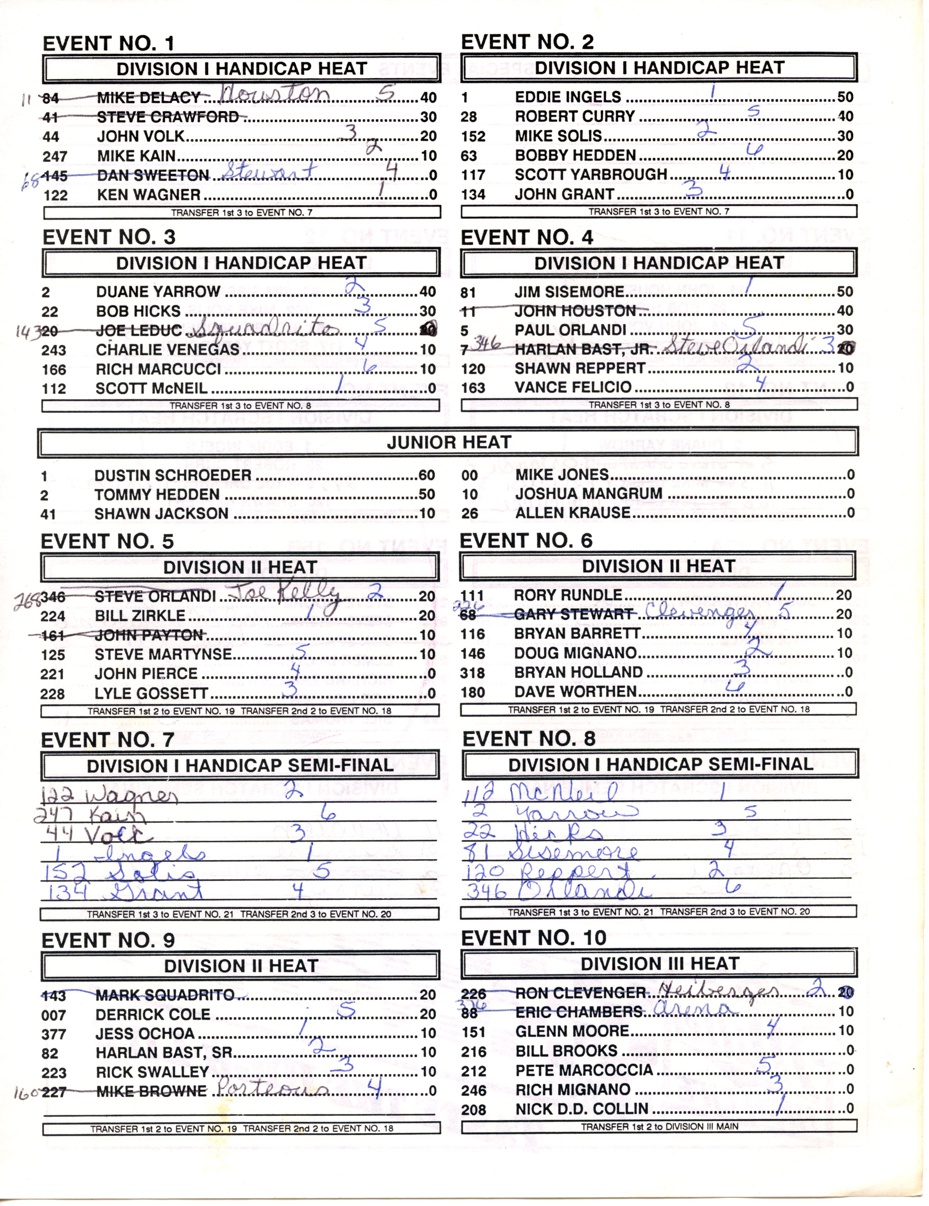 EVENT NO. 1
DIVISION I HANDICAP HEAT
11 84 MIKE DELACY Houston 5 40
41 STEVE CRAWFORD 30
44 JOHN VOLK 3 20
247 MIKE KAIN 2 10
68 145 DAN SWEETON Stewart 4 0
122 KEN WAGNER 1 0
TRANSFER 1st 3 to EVENT NO. 7
EVENT NO. 2
DIVISION I HANDICAP HEAT
1 EDDIE INGELS 1 50
28 ROBERT CURRY 5 40
152 MIKE SOLIS 2 30
63 BOBBY HEDDEN 6 20
117 SCOTT YARBROUGH 4 10
134 JOHN GRANT 3 0
TRANSFER 1st 3 to EVENT NO. 7
EVENT NO. 3
DIVISION I HANDICAP HEAT
2 DUANE YARROW 2 40
22 BOB HICKS 3 30
143 20 JOE LEDUC Squadrito 5
243 CHARLIE VENEGAS 4 10
166 RICH MARCUCCI 6 10
112 SCOTT McNEIL 1 0
TRANSFER 1st 3 to EVENT NO. 8
EVENT NO. 4
DIVISION I HANDICAP HEAT
81 JIM SISEMORE 1 50
11 JOHN HOUSTON 40
5 PAUL ORLANDI 5 30
7 346 HARLAN BAST, JR. Steve Orlandi 3 20
120 SHAWN REPPERT 2 10
163 VANCE FELICIO 4 0
TRANSFER 1st 3 to EVENT NO. 8
JUNIOR HEAT
1 DUSTIN SCHROEDER 60
2 TOMMY HEDDEN 50
41 SHAWN JACKSON 10
00 MIKE JONES 0
10 JOSHUA MANGRUM 0
26 ALLEN KRAUSE 0
EVENT NO. 5
DIVISION II HEAT
268 346 STEVE ORLANDI Joe Kelly 2 20
224 BILL ZIRKLE 1 20
161 JOHN PAYTON 10
125 STEVE MARTYNSE 5 10
221 JOHN PIERCE 4 0
228 LYLE GOSSETT 3 0
TRANSFER 1st 2 to EVENT NO. 19 TRANSFER 2nd 2 to EVENT NO. 18
EVENT NO. 6
DIVISION II HEAT
111 RORY RUNDLE 1 20
226 68 GARY STEWART Clevenger 5 20
116 BRYAN BARRETT 4 10
146 DOUG MIGNANO 2 10
318 BRYAN HOLLAND 3 0
180 DAVE WORTHEN 6 0
TRANSFER 1st 2 to EVENT NO. 19 TRANSFER 2nd 2 to EVENT NO. 18
EVENT NO. 7
DIVISION I HANDICAP SEMI-FINAL
122 Wagner 2
247 Kain 6
44 Volk 3
1 Ingels 1
152 Solis 5
134 Grant 4
TRANSFER 1st 3 to EVENT NO. 21 TRANSFER 2nd 3 to EVENT NO. 20
EVENT NO. 8
DIVISION I HANDICAP SEMI-FINAL
112 McNeil 1
2 Yarrow 5
22 Hicks 3
81 Sisemore 4
120 Reppert 2
346 Orlandi 6
TRANSFER 1st 3 to EVENT NO. 21 TRANSFER 2nd 3 to EVENT NO. 20
EVENT NO. 9
DIVISION II HEAT
143 MARK SQUADRITO 20
007 DERRICK COLE 5 20
377 JESS OCHOA 1 10
82 HARLAN BAST, SR 2 10
223 RICK SWALLEY 3 10
160 227 MIKE BROWNE Porteous 4 0
TRANSFER 1st 2 to EVENT NO. 19 TRANSFER 2nd 2 to EVENT NO. 18
EVENT NO. 10
DIVISION III HEAT
226 RON CLEVENGER Heiberger 2 20
88 ERIC CHAMBERS Arena 10
151 GLENN MOORE 4 10
216 BILL BROOKS 0
212 PETE MARCOCCIA 5 0
246 RICH MIGNANO 3 0
208 NICK D.D. COLLIN 1 0
TRANSFER 1st 2 to DIVISION III MAIN